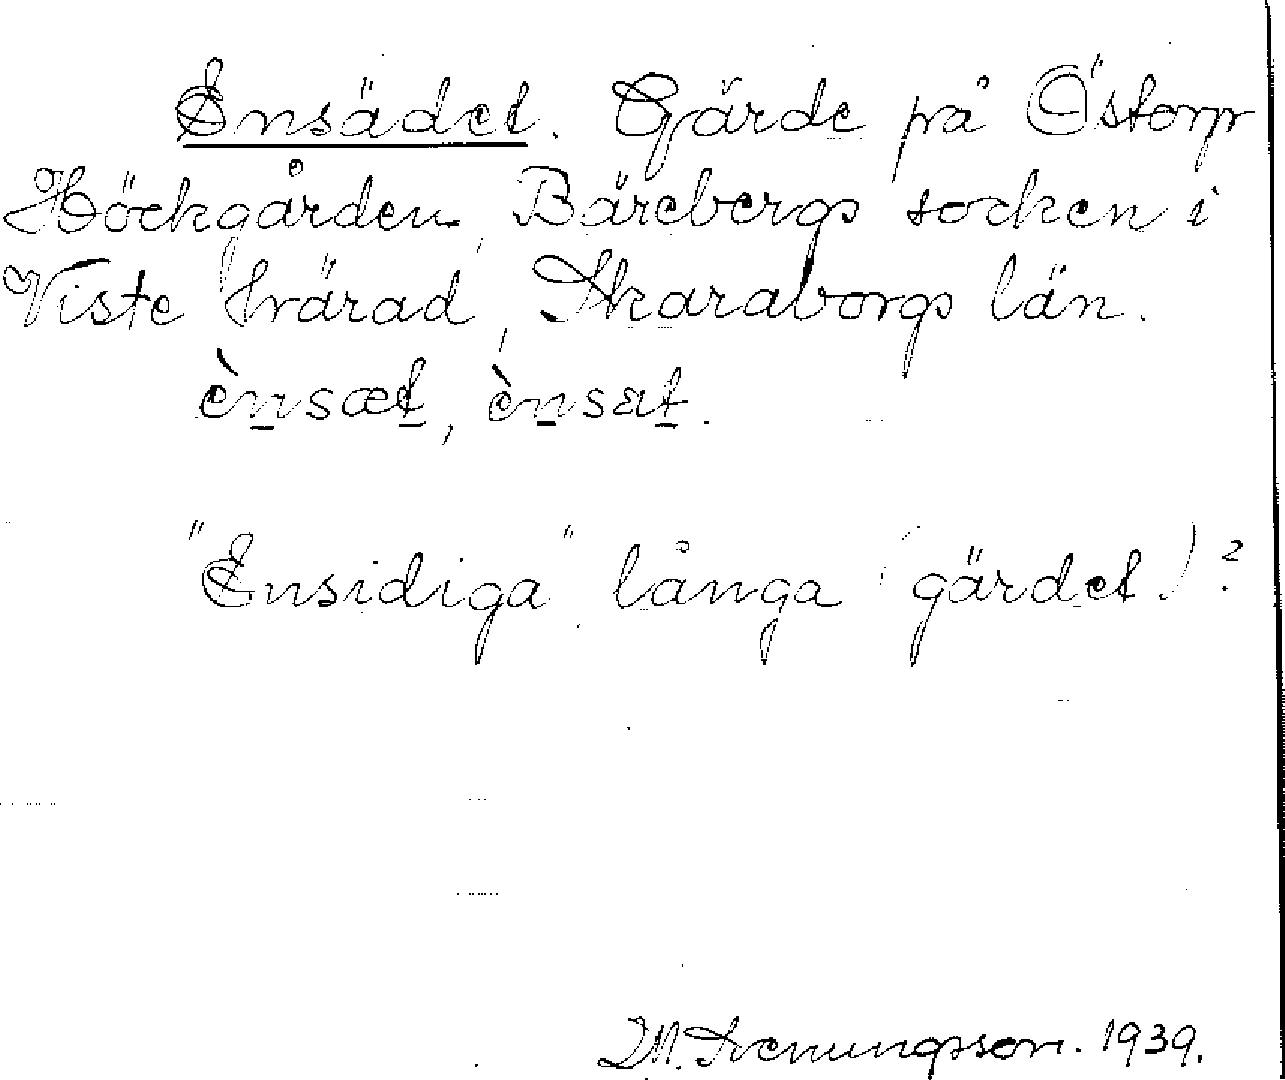 Ensädet. Gärde på Östorp
Höckgården, Bärebergs socken i
Viste härad, Skaraborgs län.
ènsæt, ènsat.
"Ensidiga" långa (gärdet)?
M. Svenungsson. 1939.